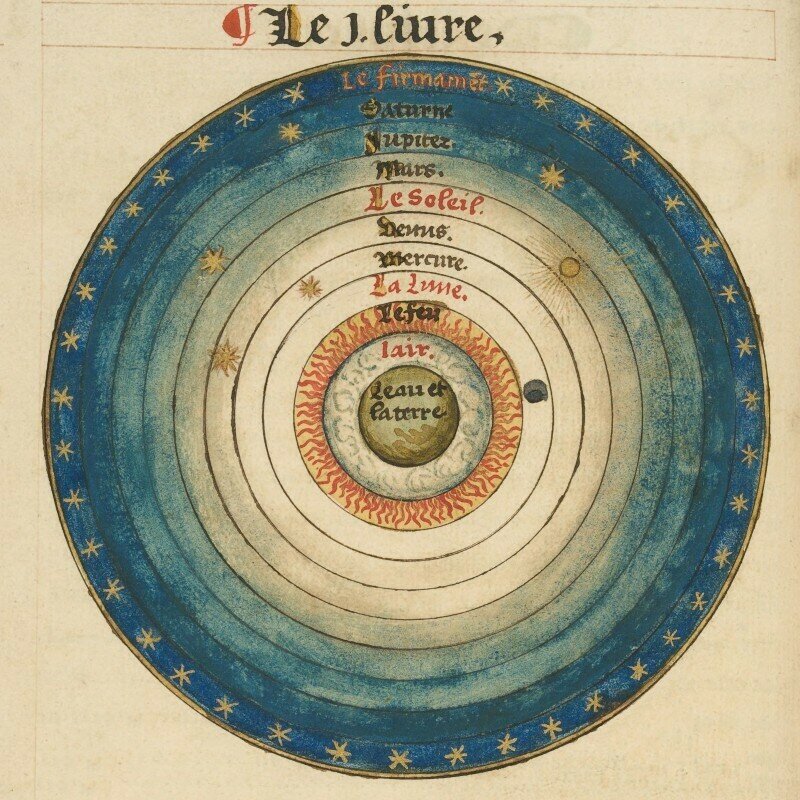 ¶ Le j. liure,
Le firmamēt
Saturne
Jupiter.
Mars.
Le Soleil.
Venus.
Mercure.
La Lune.
Le feu
lair.
Leau et
laterre